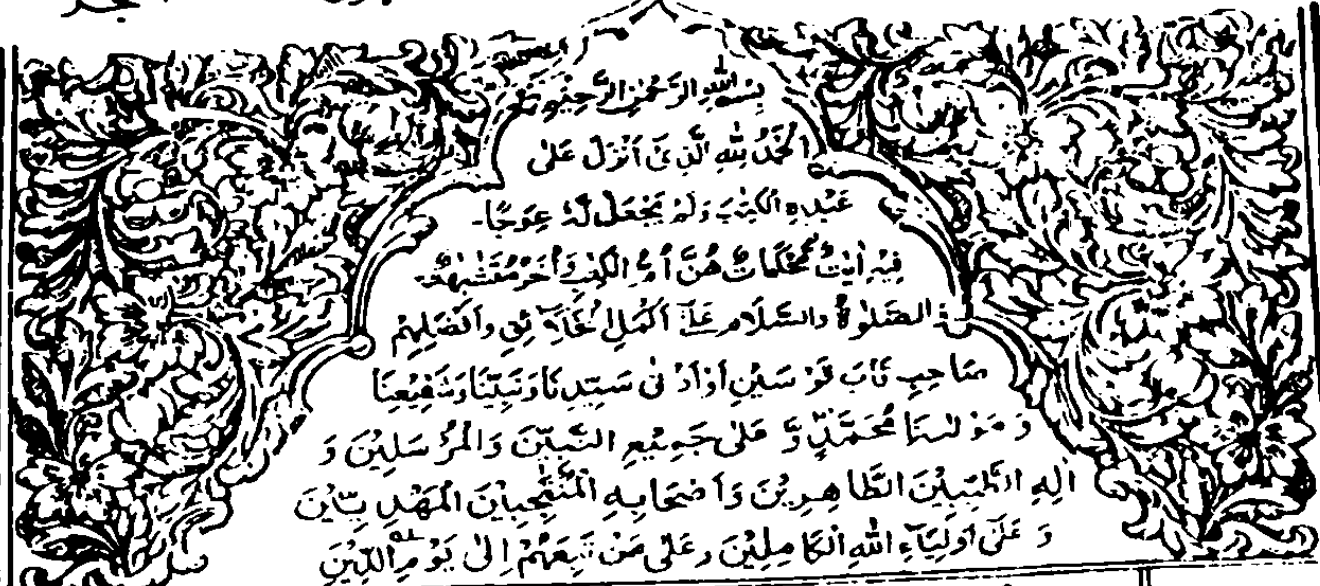 بسم الله الرحمن الرحيم
اَلْحَمْدُ لِلّٰهِ الَّذِىْ اَنْزَلَ عَلٰى
عَبْدِهِ الْكِتٰبَ وَلَمْ يَجْعَلْ لَهٗ عِوَجًا۔
فِيْهِ اٰيٰتٌ مُّحْكَمَاتٌ هُنَّ اُمُّ الْكِتٰبِ وَاُخَرُ مُتَشٰبِهٰتٌ۔
الصَّلٰوةُ وَالسَّلَامُ عَلٰى اَكْمَلِ الْخَلَائِقِ وَاَفْضَلِهِمْ
صَاحِبِ قَابَ قَوْسَيْنِ اَوْ اَدْنٰى سَيِّدِنَا وَنَبِيِّنَا وَشَفِيْعِنَا
وَ مَوْلٰىنَا مُحَمَّدٍ وَّ عَلٰى جَمِيْعِ النَّبِيّٖنَ وَالْمُرْسَلِيْنَ وَ
اٰلِهِ الطَّيِّبِيْنَ الطَّاهِرِيْنَ وَاَصْحَابِهِ الْمُنْتَجَبِيْنَ الْمَهْدِيِّيْنَ
وَ عَلٰى اَوْلِيَآءِ اللّٰهِ الْكَامِلِيْنَ وَعَلٰى مَنْ تَبِعَهُمْ اِلٰى يَوْمِ الدِّيْنِ